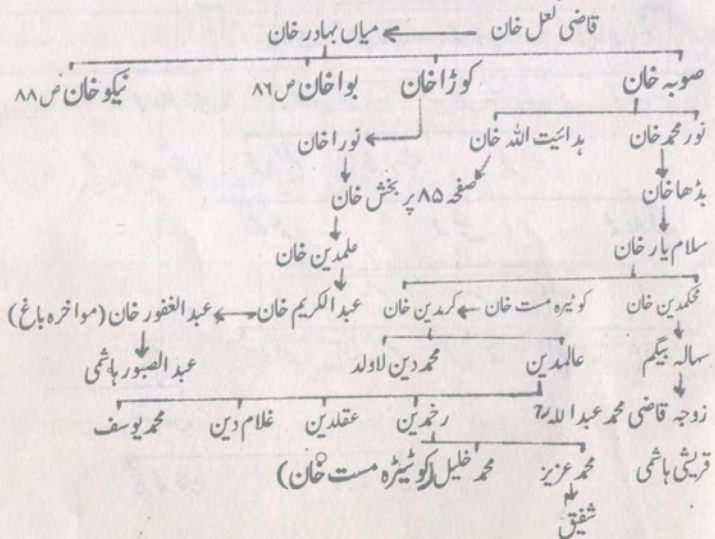 قاضی لعل خان ← میاں بہادر خان
صوبہ خان کوڑا خان بوا خان ص ۸۶ نیکو خان ص ۸۸
نور محمد خان ہدائیت اللہ خان نورا خان
بڈھا خان صفحہ ۸۵ پر بخش خان
سلام یار خان علمدین خان
محکمدین خان کوٹیڑہ مست خان ← کرمدین خان عبدالکریم خان ↔ عبدالغفور خان (مواخرہ باغ)
سہالہ بیگم عالمدین محمد دین لاولد عبدالصبور ہاشمی
زوجہ قاضی محمد عبداللہ رخمدین عقلدین غلام دین محمد یوسف
قریشی ہاشمی محمد عزیز محمد خلیل (کوٹیڑہ مست خان)
شفیق